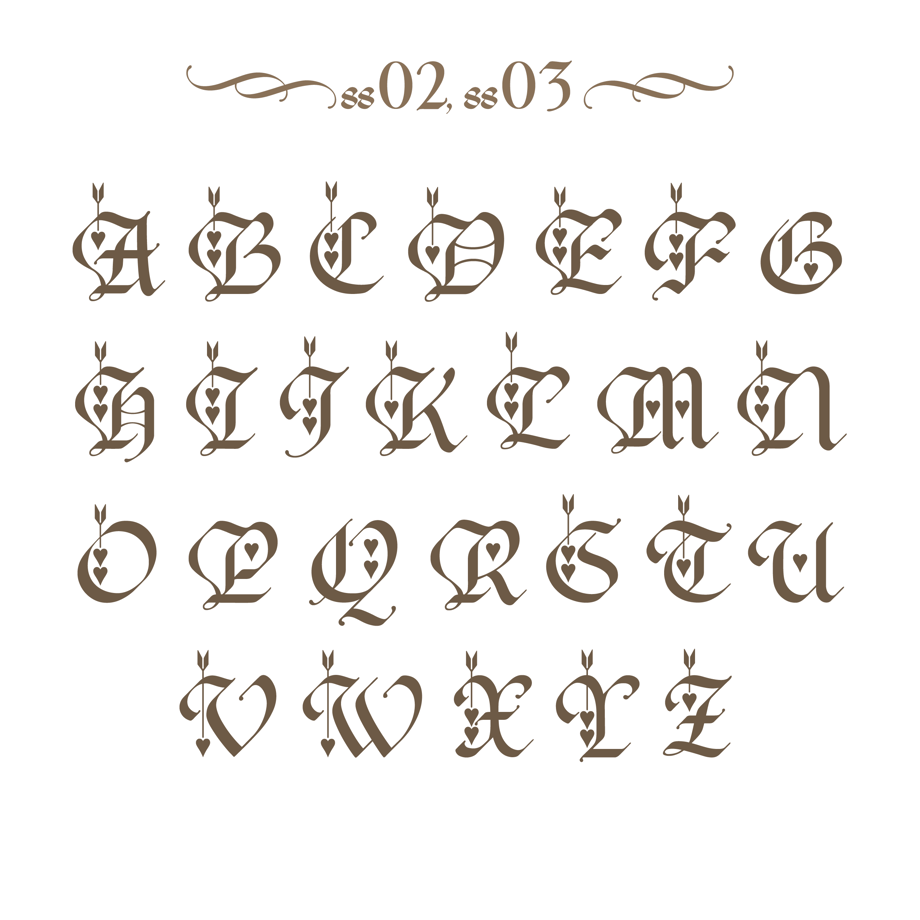 ss02, ss03
A B C D E F G
H I J K L M N
O P Q R S T U
V W X Y Z